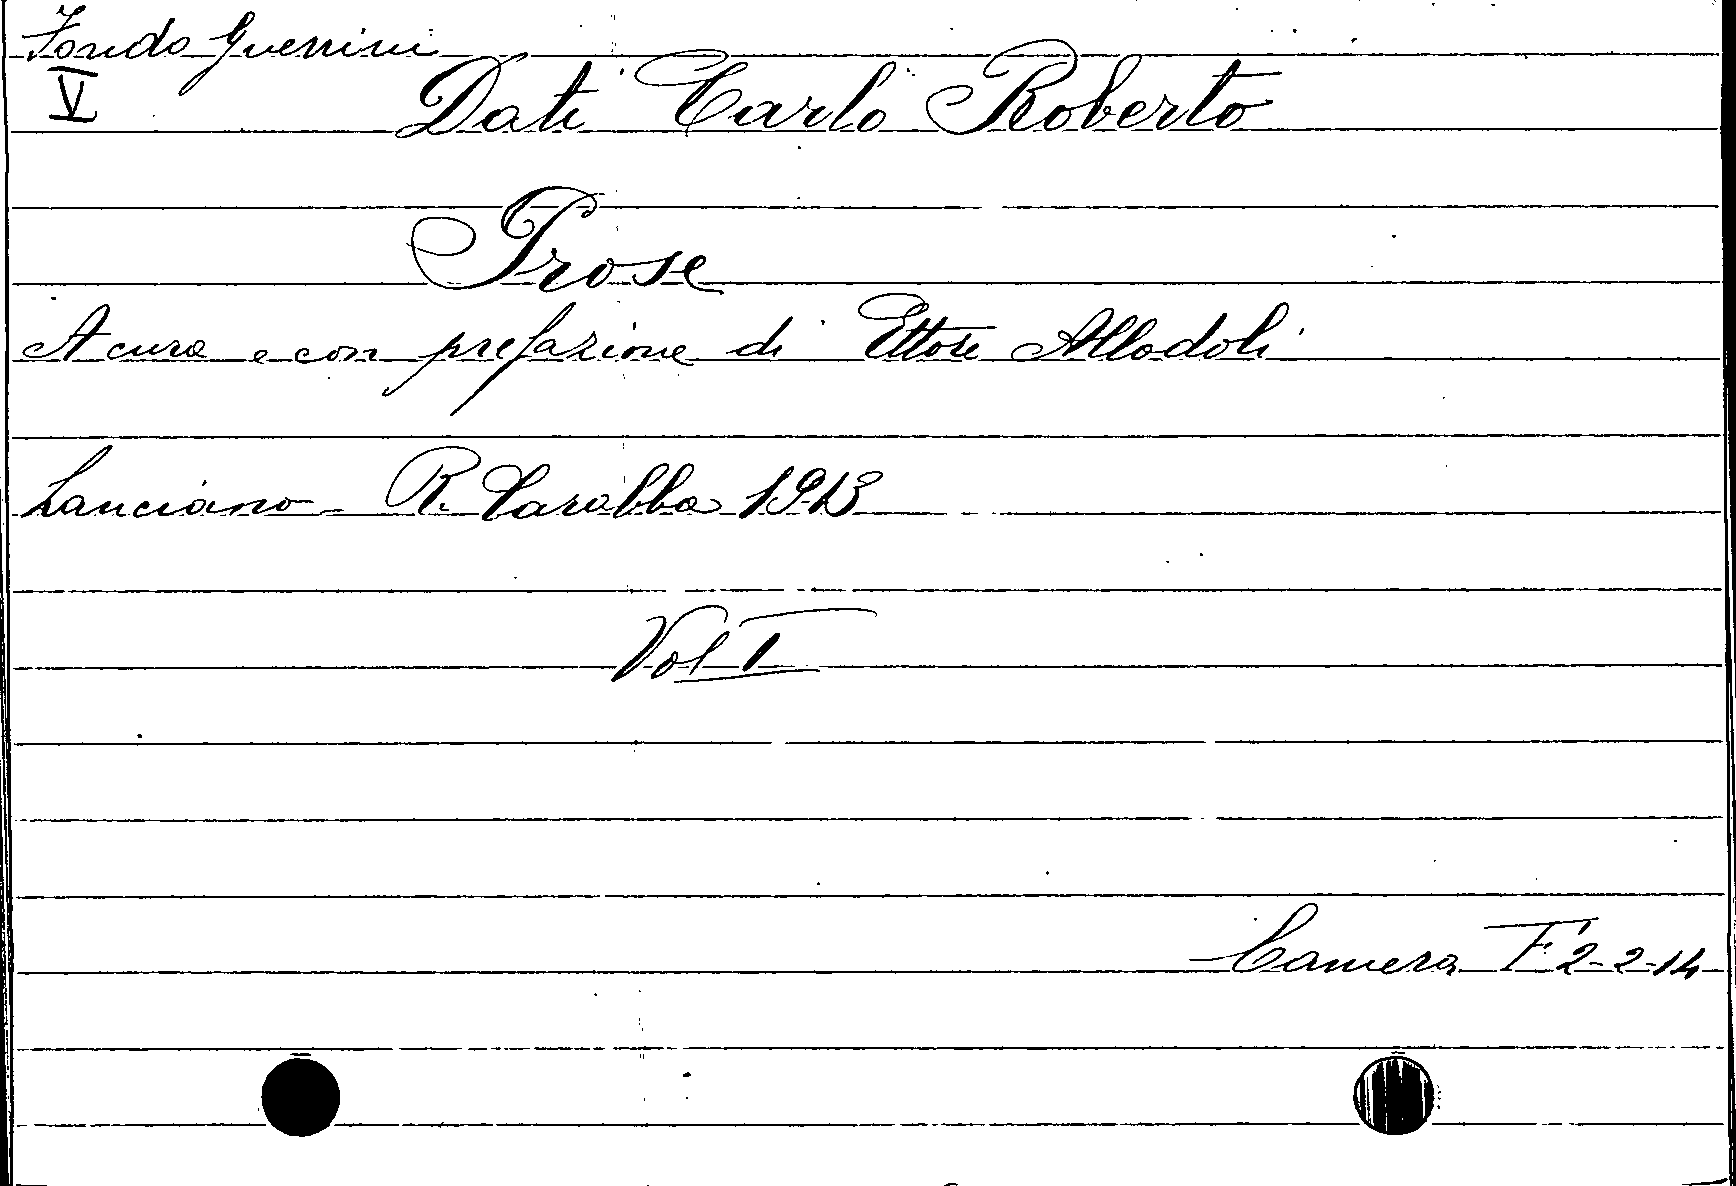 Fondo Guerrini
V
Dati Carlo Roberto
Prose
A cura e con prefazione di Ettore Allodoli
Lanciano - R. Carabba 1913
Vol I
Camera F 2-2-14